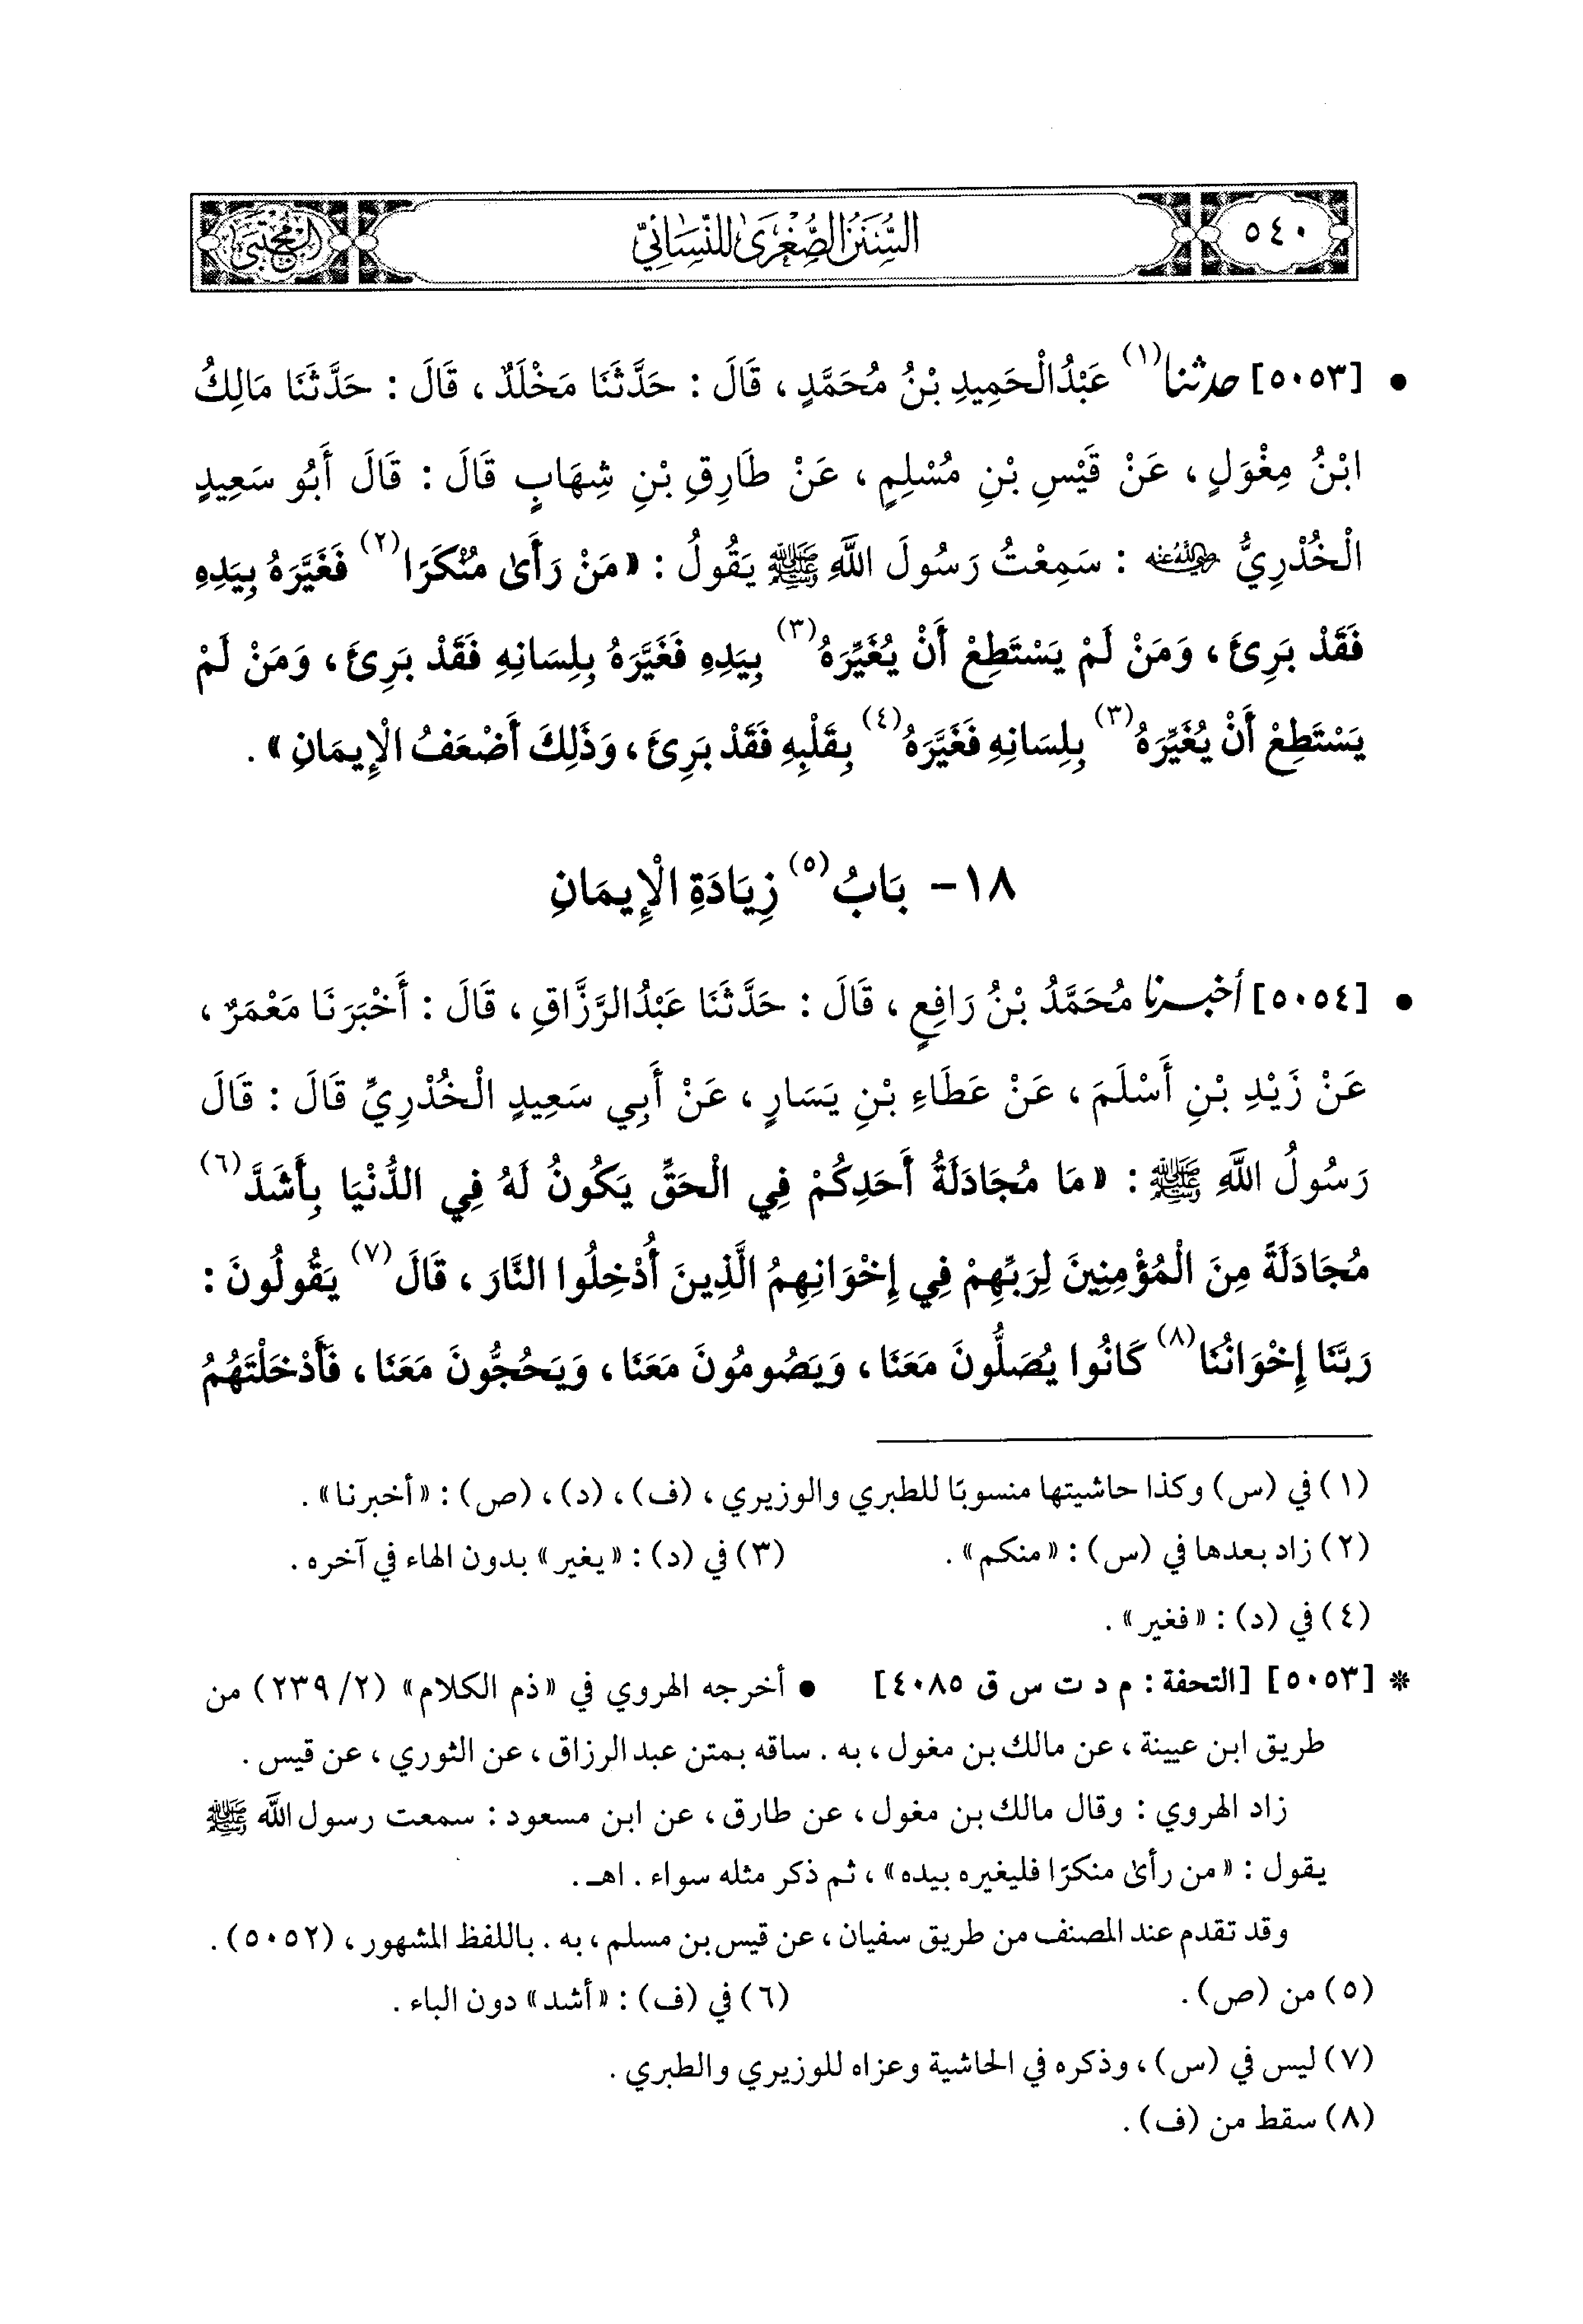 ٥٤٠
السُّنَنُ الصُّغْرَىٰ لِلنَّسَائِيِّ
المجتبى
• [٥٠٥٣] حدثنا(١) عَبْدُالْحَمِيدِ بْنُ مُحَمَّدٍ، قَالَ : حَدَّثَنَا مَخْلَدٌ، قَالَ : حَدَّثَنَا مَالِكُ
ابْنُ مِغْوَلٍ، عَنْ قَيْسِ بْنِ مُسْلِمٍ، عَنْ طَارِقِ بْنِ شِهَابٍ قَالَ : قَالَ أَبُو سَعِيدٍ
الْخُدْرِيُّ رضي الله عنه : سَمِعْتُ رَسُولَ اللَّهِ ﷺ يَقُولُ : «مَنْ رَأَىٰ مُنْكَرًا(٢) فَغَيَّرَهُ بِيَدِهِ
فَقَدْ بَرِئَ، وَمَنْ لَمْ يَسْتَطِعْ أَنْ يُغَيِّرَهُ(٣) بِيَدِهِ فَغَيَّرَهُ بِلِسَانِهِ فَقَدْ بَرِئَ، وَمَنْ لَمْ
يَسْتَطِعْ أَنْ يُغَيِّرَهُ(٣) بِلِسَانِهِ فَغَيَّرَهُ(٤) بِقَلْبِهِ فَقَدْ بَرِئَ، وَذَلِكَ أَضْعَفُ الْإِيمَانِ» .
١٨- بَابُ(٥) زِيَادَةِ الْإِيمَانِ
• [٥٠٥٤] أخبرنا مُحَمَّدُ بْنُ رَافِعٍ، قَالَ : حَدَّثَنَا عَبْدُالرَّزَّاقِ، قَالَ : أَخْبَرَنَا مَعْمَرٌ،
عَنْ زَيْدِ بْنِ أَسْلَمَ، عَنْ عَطَاءِ بْنِ يَسَارٍ، عَنْ أَبِي سَعِيدٍ الْخُدْرِيِّ قَالَ : قَالَ
رَسُولُ اللَّهِ ﷺ : «مَا مُجَادَلَةُ أَحَدِكُمْ فِي الْحَقِّ يَكُونُ لَهُ فِي الدُّنْيَا بِأَشَدَّ(٦)
مُجَادَلَةً مِنَ الْمُؤْمِنِينَ لِرَبِّهِمْ فِي إِخْوَانِهِمُ الَّذِينَ أُدْخِلُوا النَّارَ، قَالَ(٧) يَقُولُونَ :
رَبَّنَا إِخْوَانُنَا(٨) كَانُوا يُصَلُّونَ مَعَنَا، وَيَصُومُونَ مَعَنَا، وَيَحُجُّونَ مَعَنَا، فَأَدْخَلْتَهُمُ
(١) في (س) وكذا حاشيتها منسوبًا للطبري والوزيري، (ف)، (د)، (ص) : «أخبرنا» .
(٢) زاد بعدها في (س) : «منكم» . (٣) في (د) : «يغير» بدون الهاء في آخره .
(٤) في (د) : «فغير» .
* [٥٠٥٣] [التحفة : م د ت س ق ٤٠٨٥] • أخرجه الهروي في «ذم الكلام» (٢/ ٢٣٩) من
طريق ابن عيينة، عن مالك بن مغول، به . ساقه بمتن عبد الرزاق، عن الثوري، عن قيس .
زاد الهروي : وقال مالك بن مغول، عن طارق، عن ابن مسعود : سمعت رسول الله ﷺ
يقول : «من رأىٰ منكرًا فليغيره بيده»، ثم ذكر مثله سواء . اهـ .
وقد تقدم عند المصنف من طريق سفيان، عن قيس بن مسلم، به . باللفظ المشهور، (٥٠٥٢) .
(٥) من (ص) . (٦) في (ف) : «أشد» دون الباء .
(٧) ليس في (س)، وذكره في الحاشية وعزاه للوزيري والطبري .
(٨) سقط من (ف) .